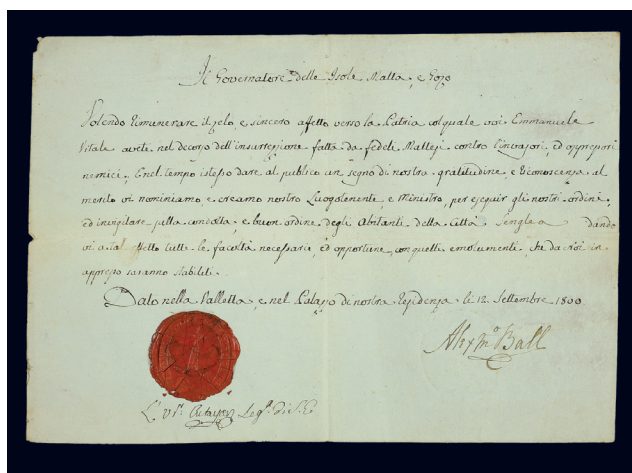 Il Governatore delle Isole Malta, e Gozo
Volendo rimunerare il zelo, e sincero affetto verso la Patria col quale voi Emmanuele
Vitale avete nel decorso dell'insurrezione fatta da fedeli Maltesi contro l'invasori, ed oppressori
nemici; E nel tempo istesso dare al publico un segno di nostra gratitudine, e riconoscenza al
merito vi nominiamo e creamo nostro Luogotenente, e Ministro, per eseguir gli nostri ordini,
ed invigilare sulla condotta, e buon ordine degli Abitanti della Città Senglea dando
vi a tal effetto tutte le facoltà necessarie, ed opportune, con quelli emolumenti, che da noi in
appresso saranno stabiliti.
Dato nella Valletta, e nel Palazzo di nostra Residenza li 12 Settembre 1800
Alexr. Ino. Ball
Seg. di S. E.